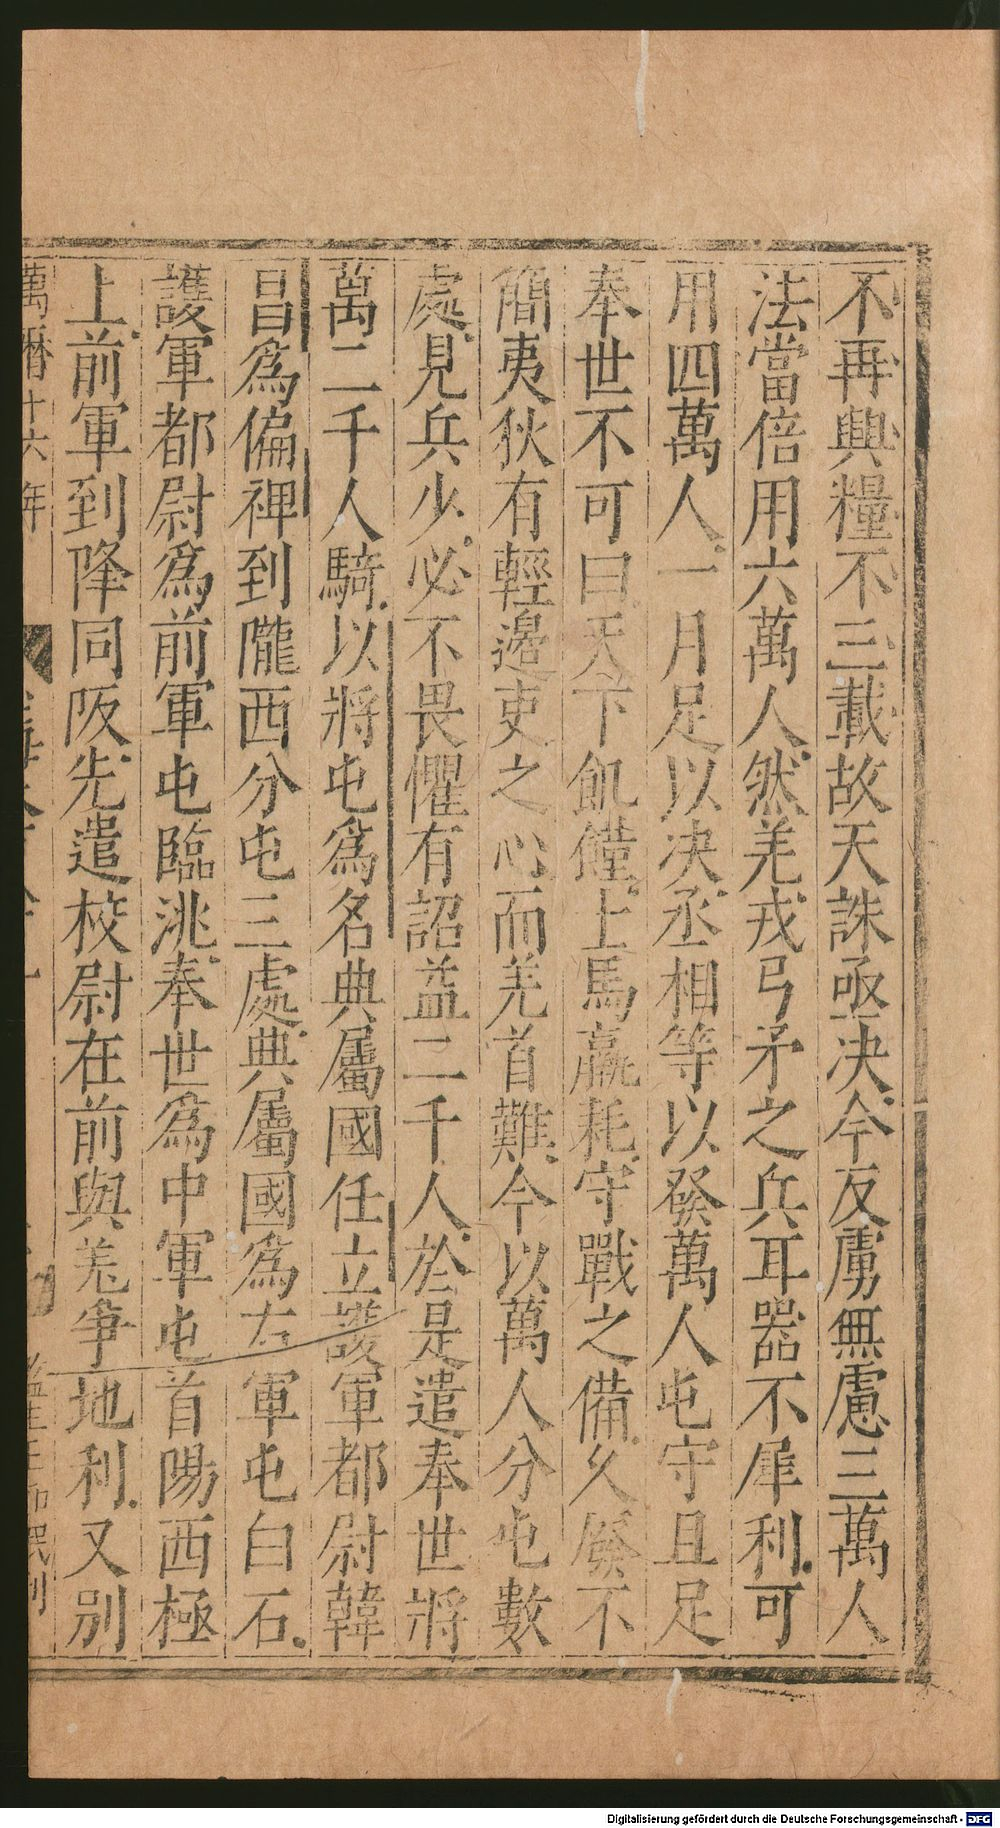 不再興糧不三載故天誅亟决今反虜無慮三萬人
法當倍用六萬人然羌戎弓矛之兵耳器不犀利可
用四萬人一月足以决丞相等以發萬人屯守且足
奉世不可曰天下飢饉士馬羸耗守戰之備久廢不
簡夷狄有輕邊吏之心而羌首難今以萬人分屯數
處見兵少必不畏懼有詔益二千人於是遣奉世將
萬二千人騎以將屯爲名典屬國任立護軍都尉韓
昌爲偏裨到隴西分屯三處典屬國爲右軍屯白石
護軍都尉爲前軍屯臨洮奉世爲中軍屯首陽西極
上前軍到降同阪先遣校尉在前與羌爭地利又別
萬曆十六年
Digitalisierung gefördert durch die Deutsche Forschungsgemeinschaft - DFG